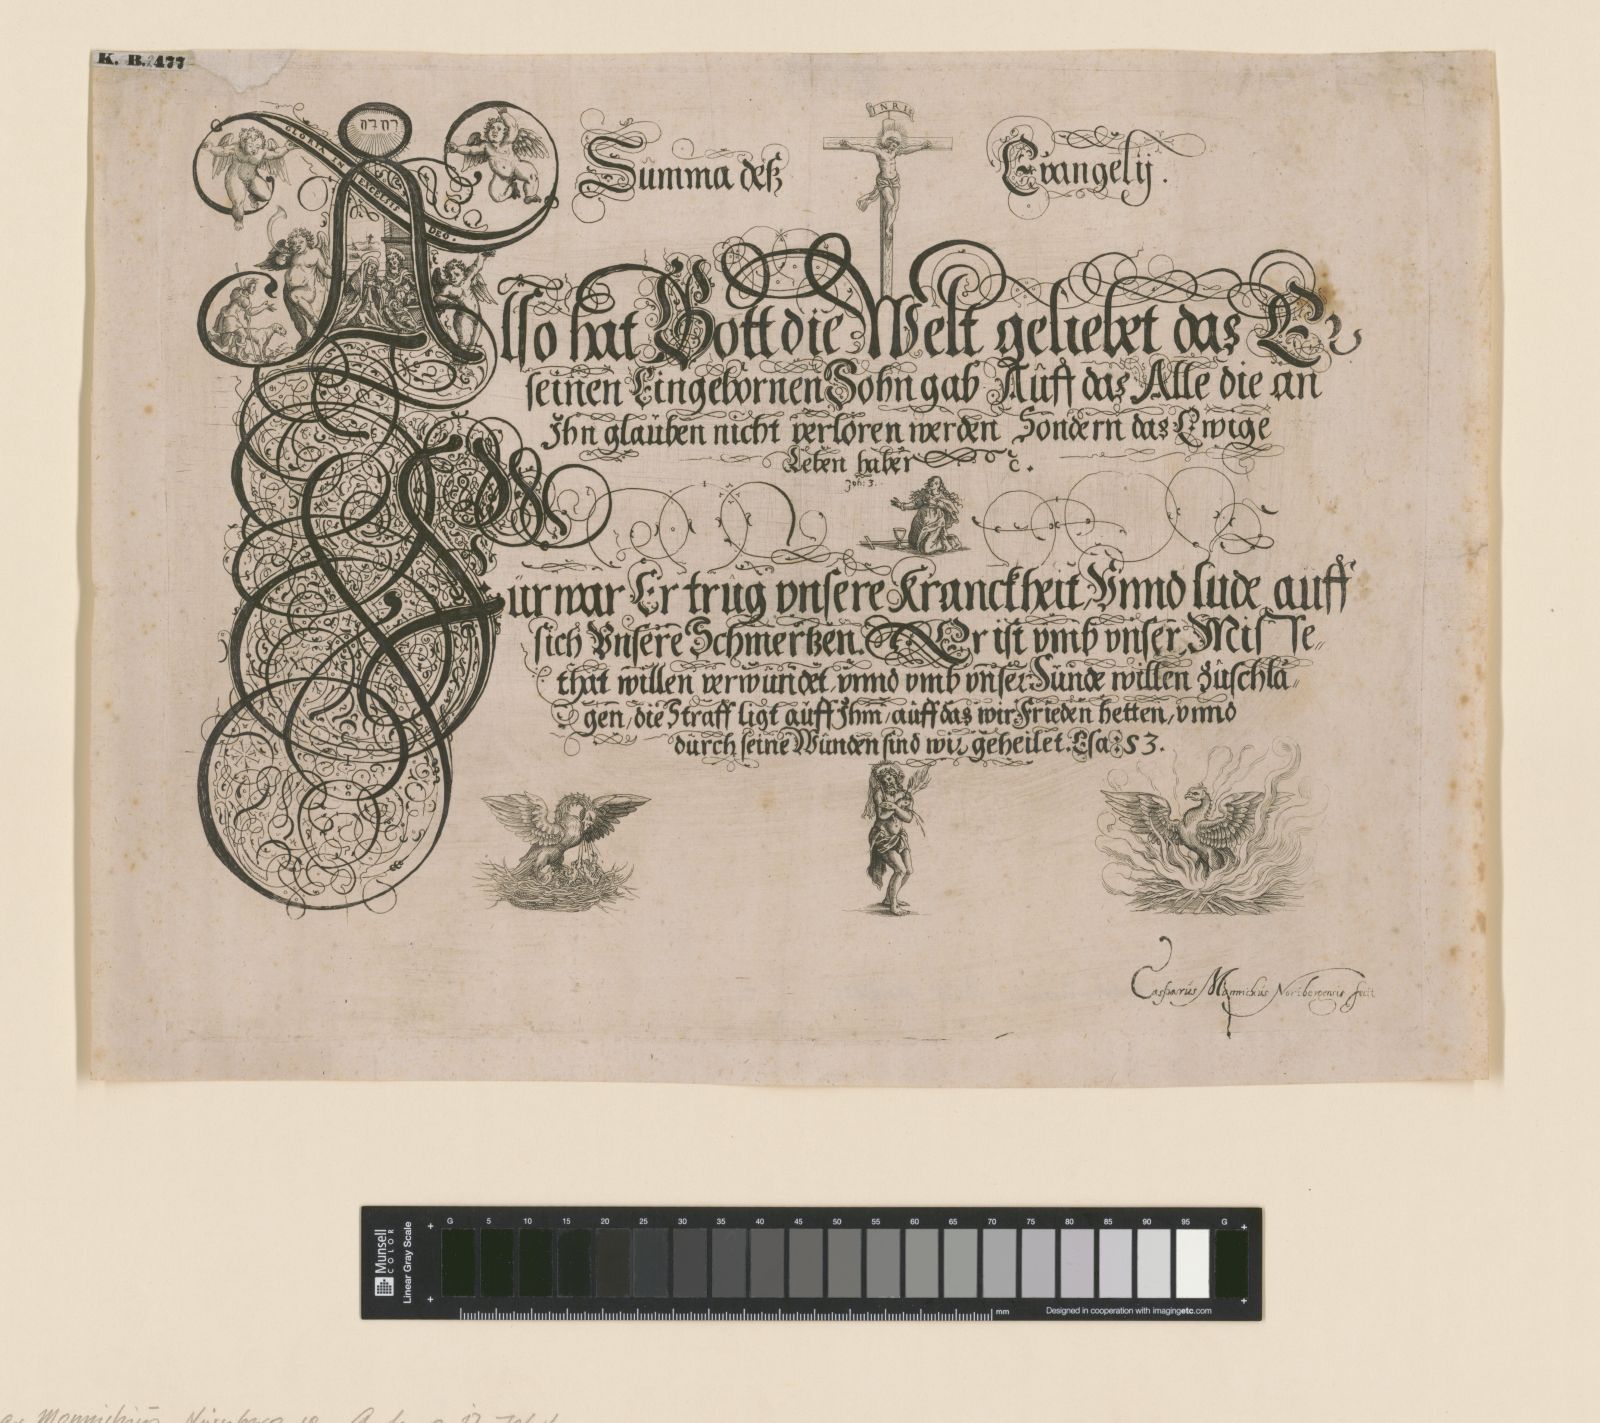 K. B. 2477
יהוה
GLORIA IN EXCELSIS DEO.
INRI
Summa deß Evangelij.
Also hat Gott die Welt geliebet das Er
seinen Eingebornen Sohn gab Auff das Alle die an
Ihn glauben nicht verloren werden Sondern das Ewige
Leben haben ꝛc.
Joh: 3.
Fürwar Er trug vnsere Kranckheit, Vnnd lude auff
sich Vnsere Schmertzen. Er ist vmb vnser Misse„
that willen verwundet, vnnd vmb vnser Sünde willen zuschla„
gen, die Straff ligt auff Ihm, auff das wir Frieden hetten, vnnd
durch seine Wunden sind wir geheilet. Esa: 53.
Casparus Mannichus Noribergensis fecit
Munsell COLOR
Linear Gray Scale
G 5 10 15 20 25 30 35 40 45 50 55 60 65 70 75 80 85 90 95 G
mm
Designed in cooperation with imagingetc.com